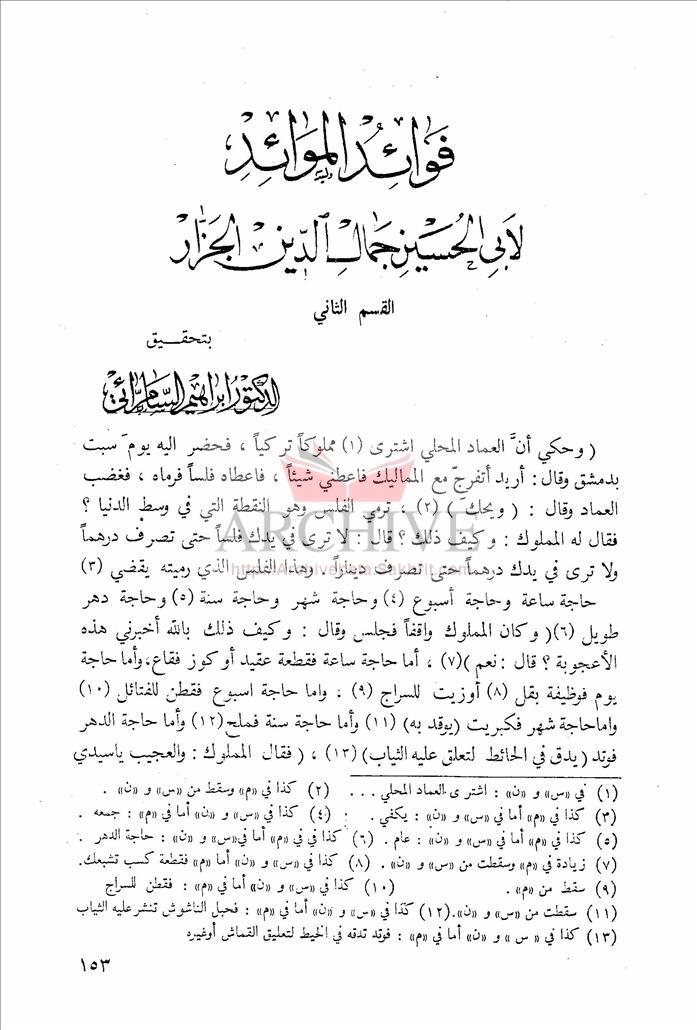 فَوائِدُ المَوائِدِ
لأبي الحُسَيْن جَمال الدِّين الجَزَّار
القسم الثاني
بتحقيق
الدكتور ابراهيم السامرائي
( وحكي أنَّ العماد المحلي اشترى (١) مملوكاً تركياً ، فحضر اليه يومَ سبت
بدمشق وقال : أريد أتفرجّ مع المماليك فاعطني شيئاً ، فاعطاه فلساً فرماه ، فغضب
العماد وقال : ( ويحك ) (٢) ، ترمي الفلس وهو النقطة التي في وسط الدنيا ؟
فقال له المملوك : وكيف ذلك ؟ قال : لا ترى في يدك فلساً حتى تصرف درهماً
ولا ترى في يدك درهماً حتى تصرف ديناراً وهذا الفلس الذي رميته يقضي (٣)
حاجة ساعة وحاجة أسبوع (٤) وحاجة شهر وحاجة سنة (٥) وحاجة دهر
طويل (٦)( وكان المملوك واقفاً فجلس وقال : وكيف ذلك بالله أخبرني هذه
الأعجوبة ؟ قال : نعم )(٧) ، أما حاجة ساعة فقطعة عقيد أو كوز فقاع، وأما حاجة
يوم فوظيفة بقل (٨) أوزيت للسراج (٩) ، واما حاجة اسبوع فقطن للفتائل (١٠)
واما حاجة شهر فكبريت (يوقد به) (١١) وأما حاجة سنة فملح (١٢) وأما حاجة الدهر
فوتد (يدق في الحائط لتعلق عليه الثياب) (١٣) ، ( فقال المملوك : والعجيب ياسيدي
(١) في «س» و «ن» : اشترى العماد المحلي . . . (٢) كذا في «م» وسقط من «س» و «ن» .
(٣) كذا في «م» أما في «س» و «ن» : يكفي . (٤) كذا في «س» و «ن» أما في «م» : جمعه .
(٥) كذا في «م» أما في «س» و «ن» : عام . (٦) كذا في في «م» أما في«س» و «ن» : حاجة الدهر .
(٧) زيادة في «م» وسقطت من «س» و «ن» . (٨) كذا في «س» و «ن» أما «م» فقطعة كسب تشبعك.
(٩) سقط من «م» . (١٠) كذا في «س» و «ن» أما في «م» : فقطن للسراج
(١١) سقطت من «س» و «ن».(١٢) كذا في «س» و «ن» أما في «م» : فحبل الناشوش تنشر عليه الثياب
(١٣) كذا في « س » و «ن» أما في «م» : فوتد تدقه في الحيط لتعليق القماش أوغيره
١٥٣
ARCHIVE